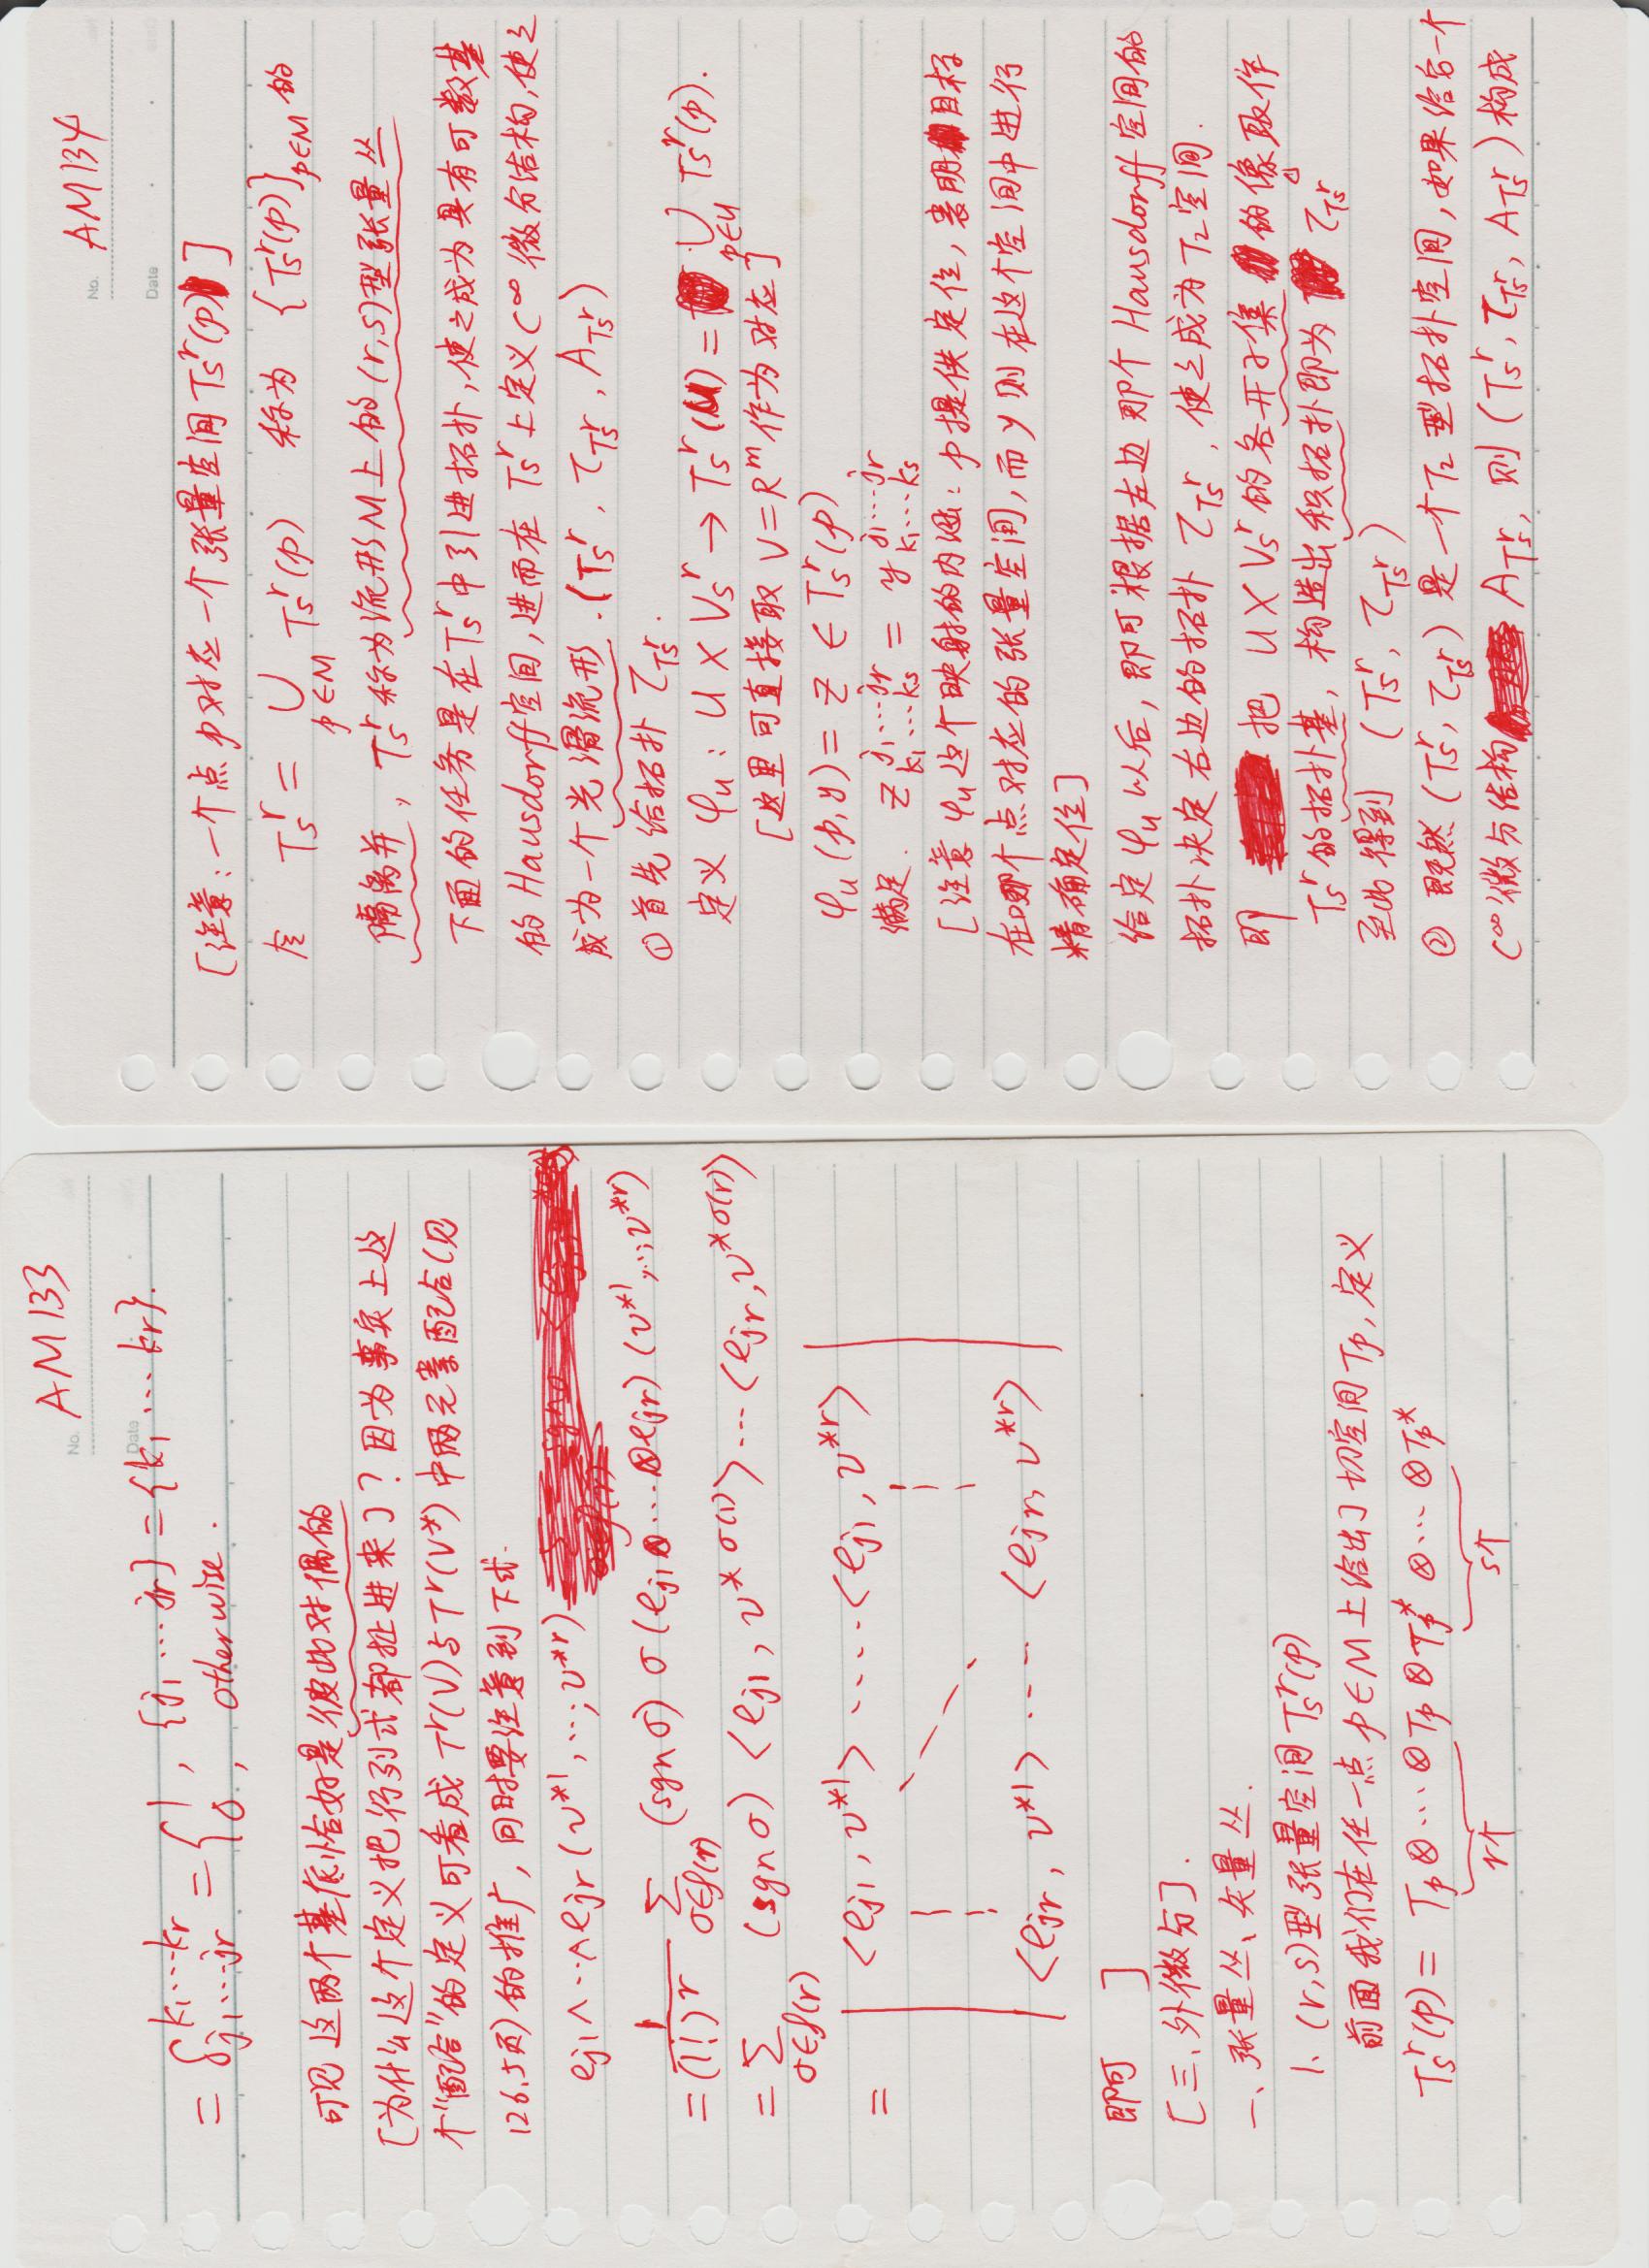 No. AM133
Date
= δ^{k₁⋯kᵣ}_{j₁⋯jᵣ} = { 1, {j₁⋯jᵣ} = {k₁⋯kᵣ}.
0, otherwise.
可见这两个基底恰好是彼此对偶的
[为什么这个定义把行列式都扯进来了?因为事实上这
个"配合"的定义可看成 T^r(V)与T^r(V*)中两元素配合(见
126.5页)的推广,同时要注意到下式.
e_{j1}∧⋯∧e_{jr}(v^{*1},⋯,v^{*r})
= 1/(1!)^r Σ_{σ∈S(r)} (sgnσ) σ(e_{j1}⊗⋯⊗e_{jr})(v^{*1},⋯,v^{*r})
= Σ_{σ∈S(r)} (sgnσ) <e_{j1}, v^{*σ(1)}>⋯<e_{jr}, v^{*σ(r)}>
= | <e_{j1}, v^{*1}> ⋯⋯ <e_{j1}, v^{*r}> |
<e_{jr}, v^{*1}> ⋯⋯ <e_{jr}, v^{*r}>
即可 ]
[三、外微分].
一、张量丛、矢量丛.
1、(r,s)型张量空间 T_s^r(p)
前面我们在任一点p∈M上给出了切空间Tp,定义
T_s^r(p) = Tp⊗⋯⊗Tp⊗Tp*⊗⋯⊗Tp*
r个 s个
No. AM134
Date
[注意:一个点p对应一个张量空间T_s^r(p)]
令 T_s^r = ∪_{p∈M} T_s^r(p) 称为 {T_s^r(p)}_{p∈M} 的
隔离并, T_s^r称为流形M上的(r,s)型张量丛
下面的任务是在T_s^r中引进拓扑,使之成为具有可数基
的Hausdorff空间,进而在T_s^r上定义C^∞微分结构,使之
成为一个光滑流形.(T_s^r, τ_{T_s^r}, A_{T_s^r})
①首先给拓扑τ_{T_s^r}.
定义 φ_u: U×V_s^r → T_s^r(U) = ∪_{p∈U} T_s^r(p).
[这里可直接取V=R^m作为对应]
φ_u(p,y) = z ∈ T_s^r(p)
满足. z^{j₁⋯jᵣ}_{k₁⋯kₛ} = y^{j₁⋯jᵣ}_{k₁⋯kₛ}
[注意φ_u这个映射的内涵:p提供定位,表明目标
在哪个点对应的张量空间,而y则在这个空间中进行
精确定位]
给定φ_u以后,即可根据左边那个Hausdorff空间的
拓扑决定右边的拓扑τ_{T_s^r},使之成为T₂空间.
即 把U×V_s^r的各开子集的像取作
T_s^r的拓扑基,构造出积拓扑即为 τ_{T_s^r}
至此得到 (T_s^r, τ_{T_s^r})
②既然(T_s^r, τ_{T_s^r})是一个T₂型拓扑空间,如果给它一个
C^∞微分结构 A_{T_s^r},则(T_s^r, τ_{T_s^r}, A_{T_s^r})构成